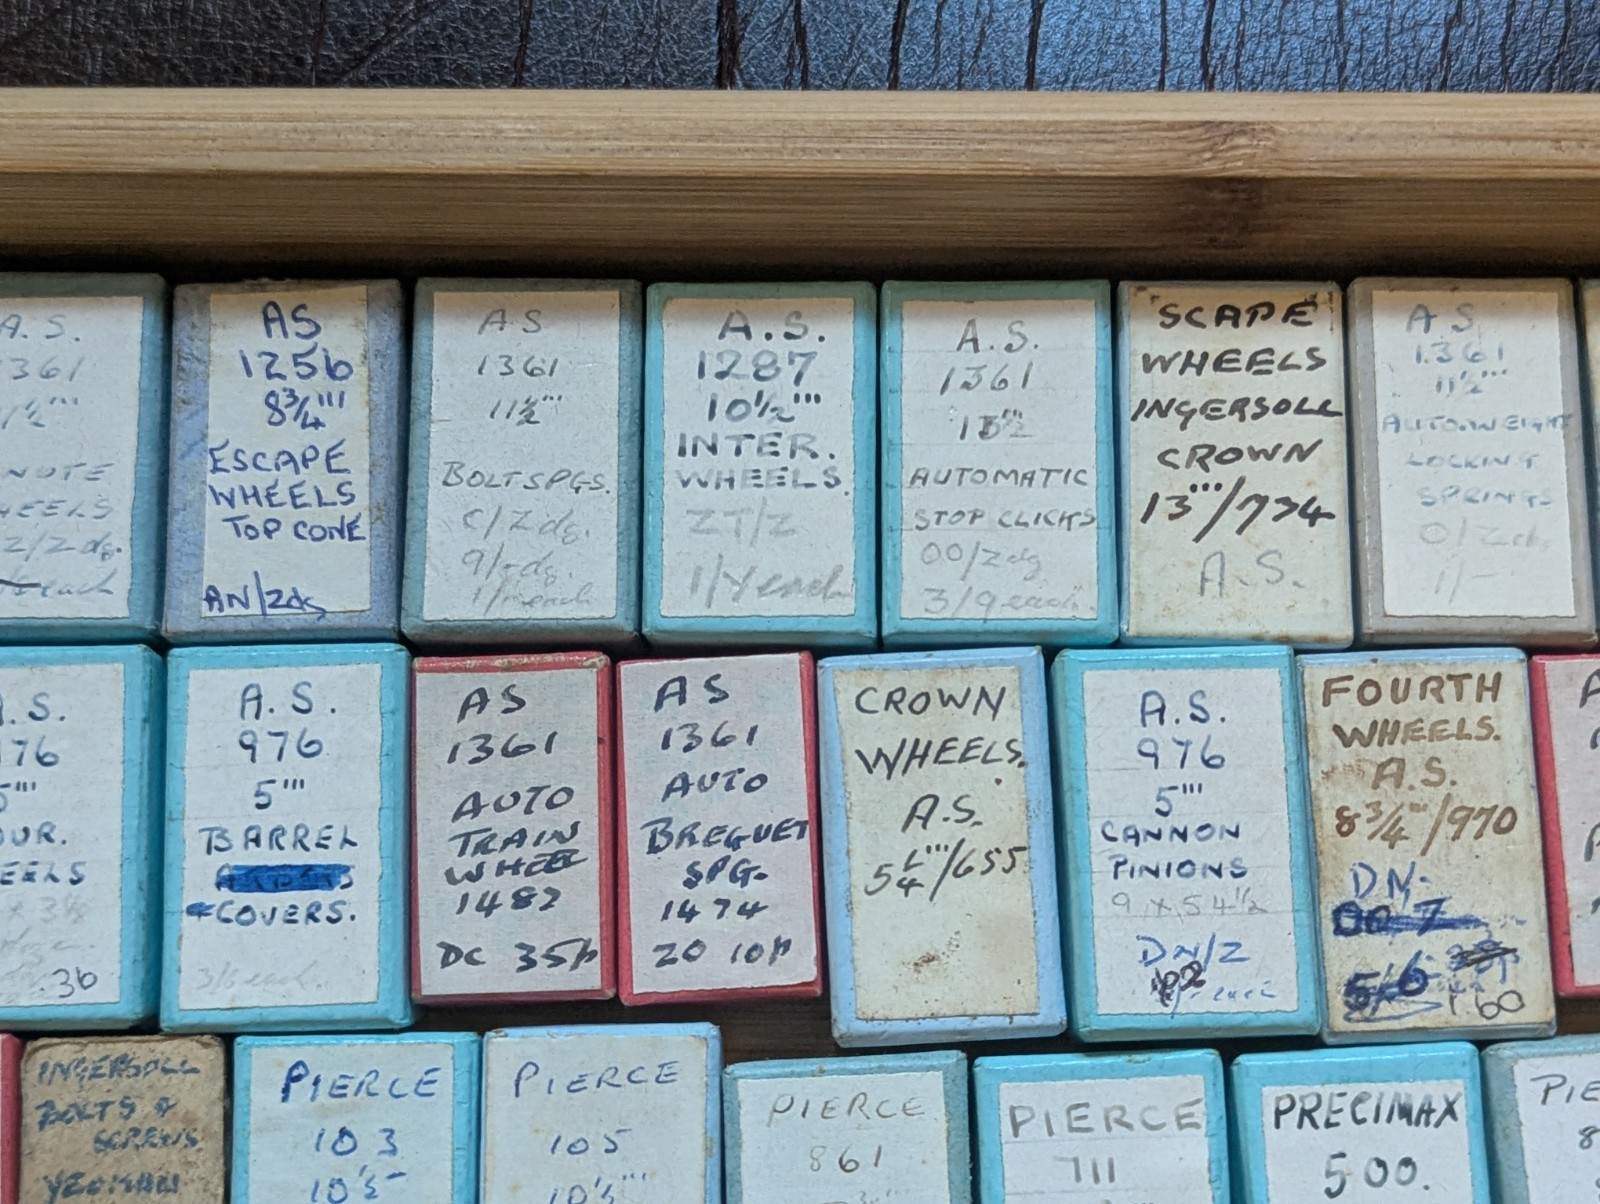 A.S.
1361
1½'''
NUTE
WHEELS
Z/Zdg.
each
AS
1256
8¾'''
ESCAPE
WHEELS
TOP CONE
AN/Zdg
AS
1361
11½'''
BOLT SPGS.
C/Zdg.
9/-dg.
1/- each
A.S.
1287
10½'''
INTER.
WHEELS.
ZT/Z
each
A.S.
1361
AUTOMATIC
STOP CLICKS
00/Zdg
3/9 each.
SCAPE
WHEELS
INGERSOLL
CROWN
13'''/774
A.S.
A.S.
1361
11½'''
AUTO.WEIGHT
LOCKING
SPRINGS
0/Zdg.
1/-
.S.
76
5'''
OUR.
EELS
36
A.S.
976
5'''
BARREL
COVERS.
3/6 each.
AS
1361
AUTO
TRAIN
WHEEL
1482
DC 35p
AS
1361
AUTO
BREGUET
SPG.
1474
ZO 10p
CROWN
WHEELS.
A.S.
5¼'''/655
A.S.
976
5'''
CANNON
PINIONS
9 x 54½
DN/Z
each
FOURTH
WHEELS.
A.S.
8¾'''/970
DN.
5/6
1.60
A
INGERSOLL
BOLTS &
SCREWS.
YEOMAN
PIERCE
103
10½
PIERCE
105
10½'''
PIERCE
861
PIERCE
711
PRECIMAX
500.
PIE
8